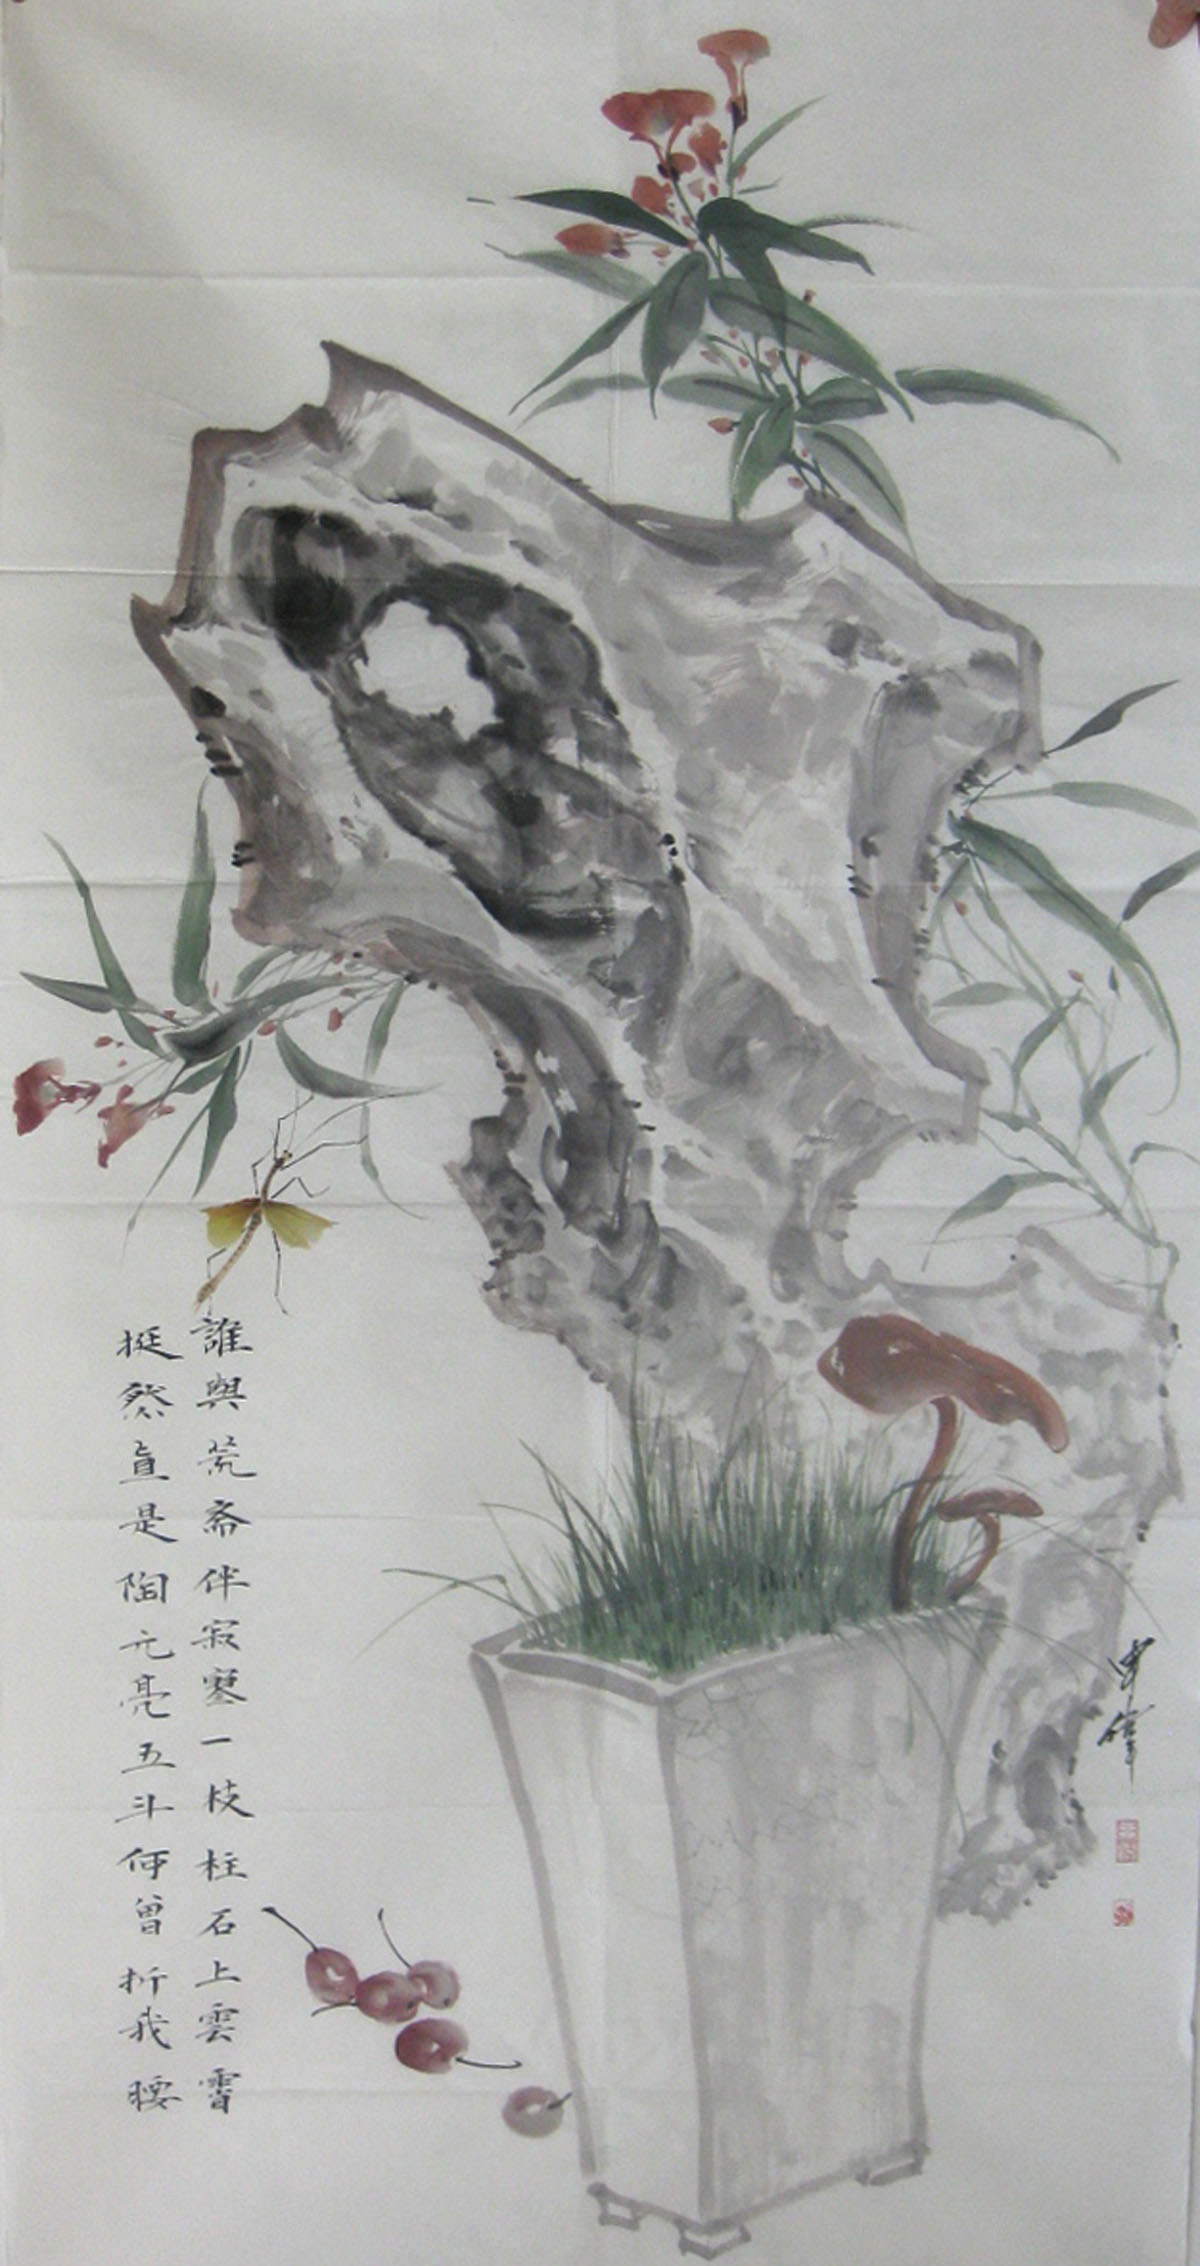 誰與荒斎伴寂寥一枝柱石上雲霄
挺然直是陶元亮五斗何曾折我腰